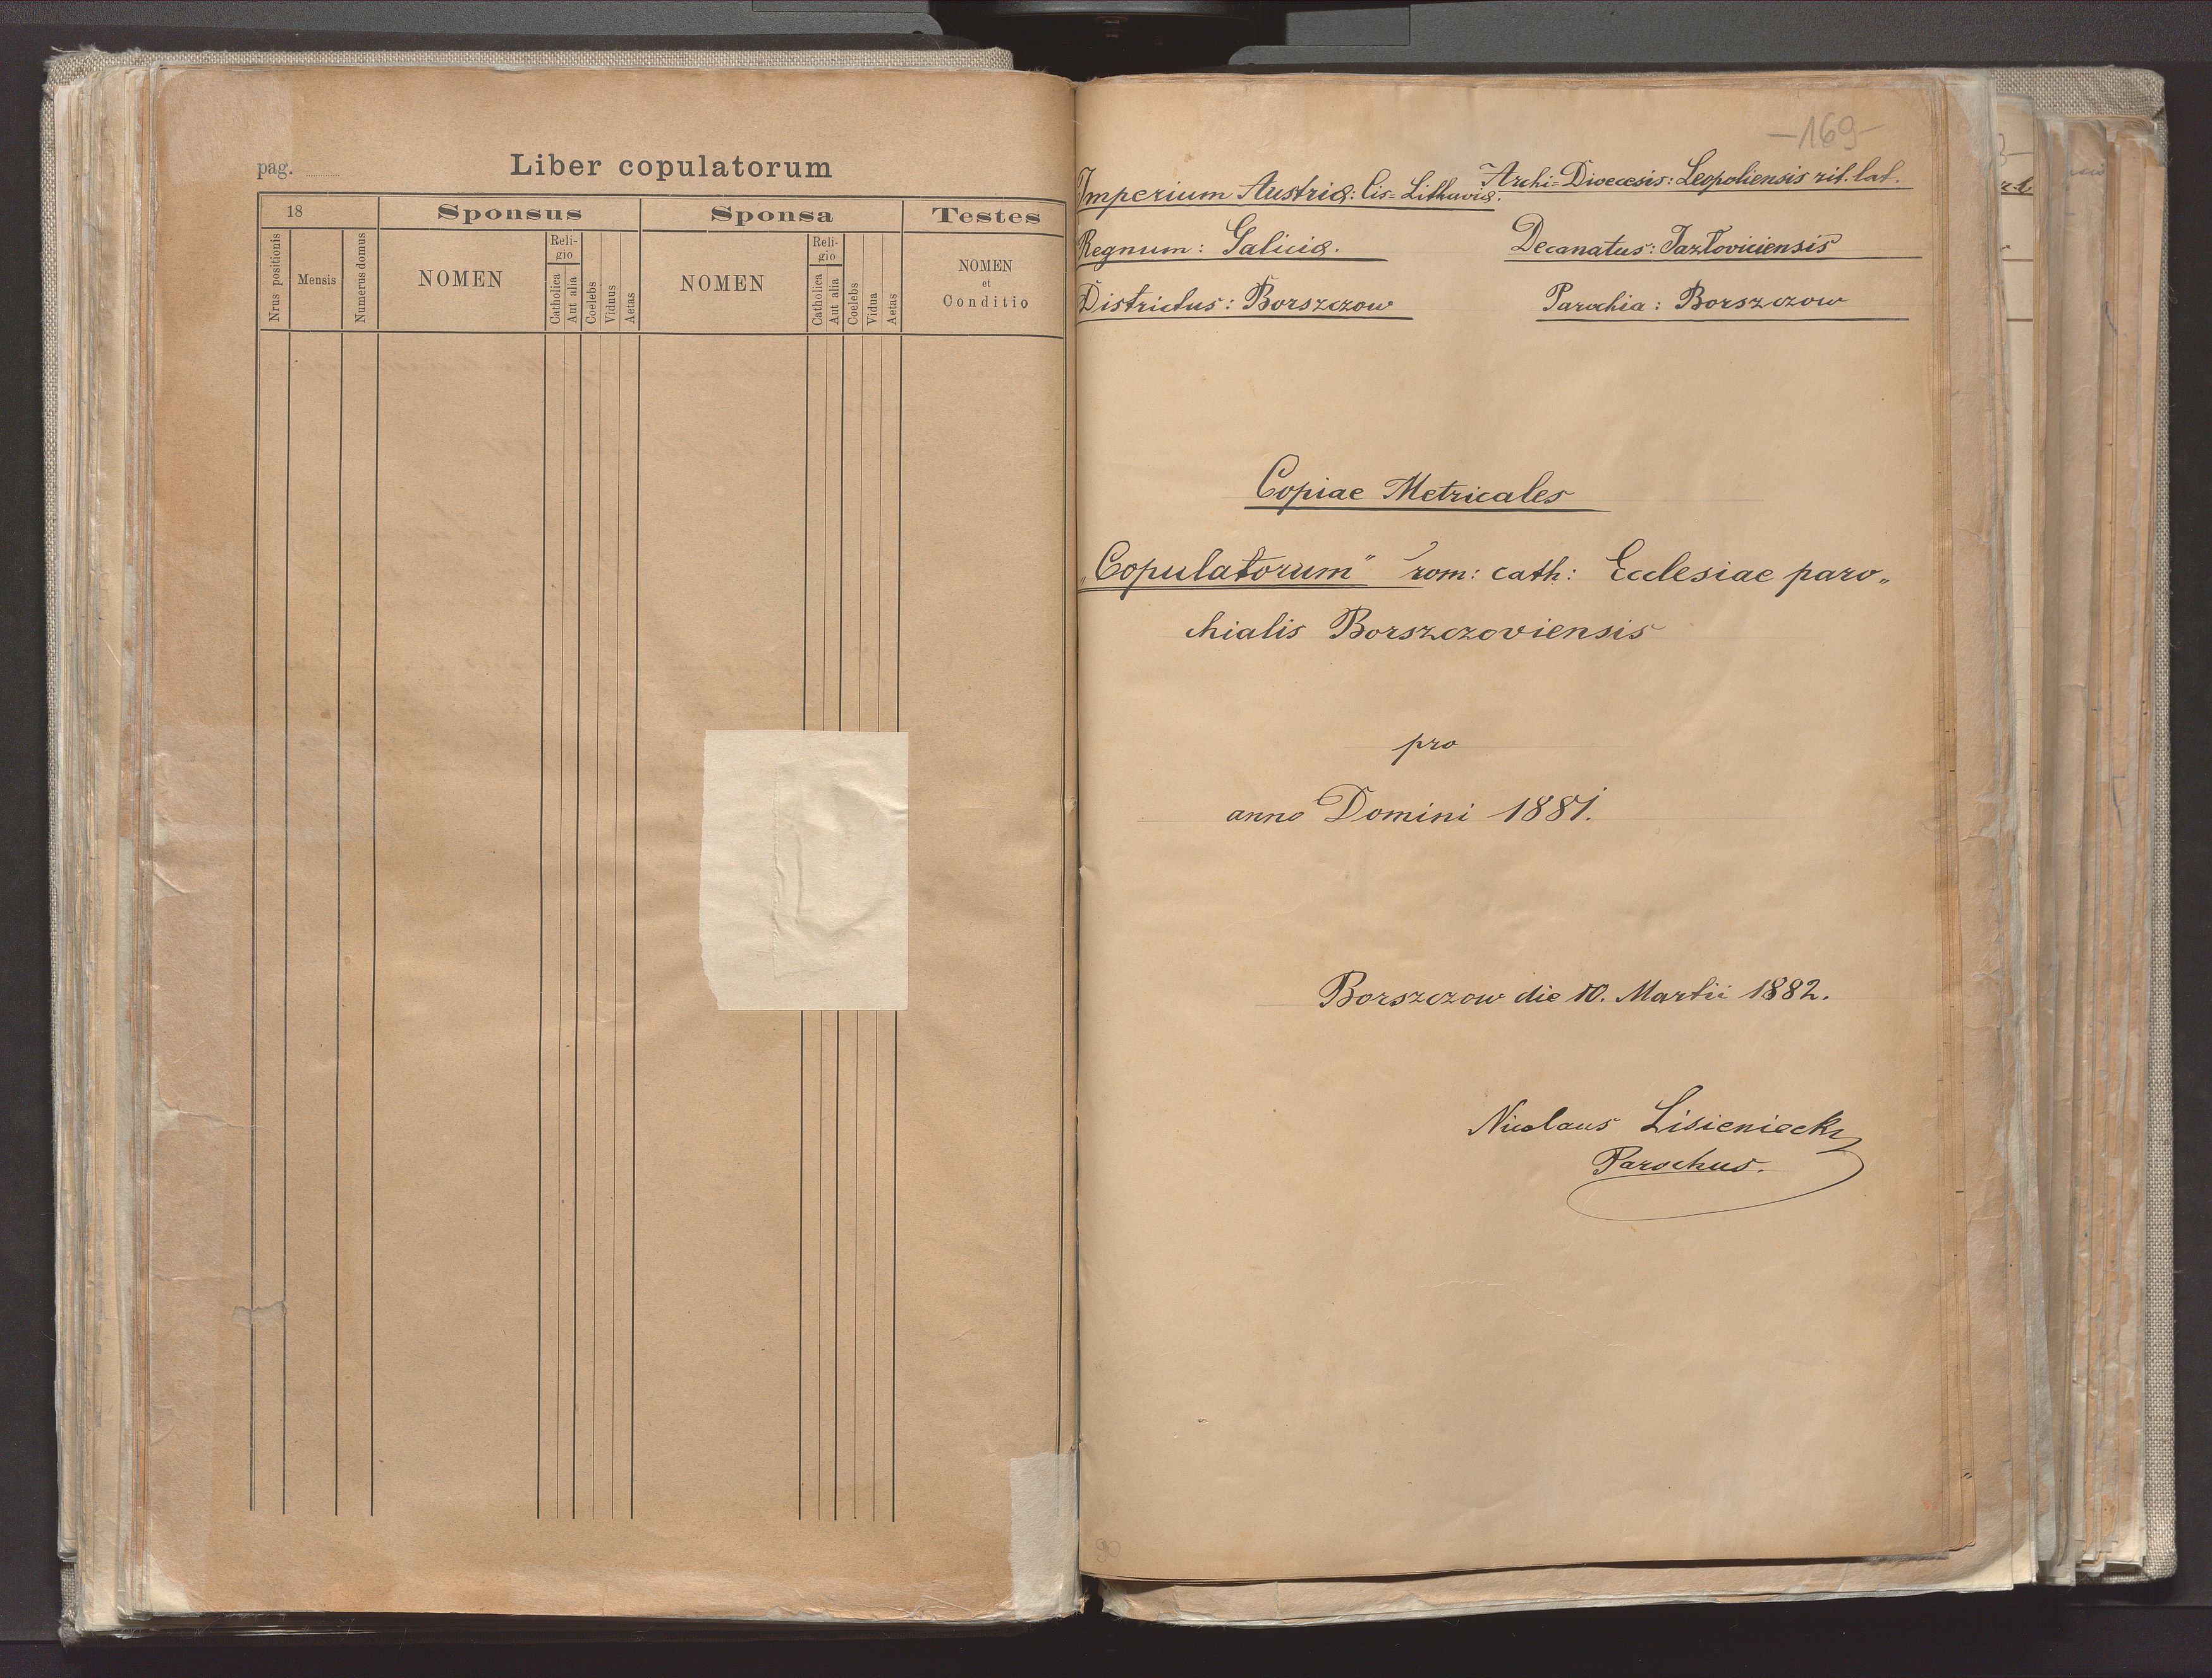 pag.
Liber copulatorum
18
Sponsus
Sponsa
Testes
Nrus positionis
Mensis
Numerus domus
NOMEN
Reli-
gio
Catholica
Aut alia
Coelebs
Viduus
Aetas
NOMEN
Reli-
gio
Catholica
Aut alia
Coelebs
Vidua
Aetas
NOMEN
et
Conditio
-169-
Imperium Austriae: Cis=Lithaviae.
Archi=Dioecesis: Leopoliensis rit. lat.
Regnum: Galiciae.
Decanatus: Jazłoviciensis
Districtus: Borszczow
Parochia: Borszczow
Copiae Metricales
„Copulatorum" rom: cath: Ecclesiae paro„
chialis Borszczoviensis
pro
anno Domini 1881.
Borszczow die 10. Martii 1882.
Nicolaus Lisieniecki
Parochus.
90